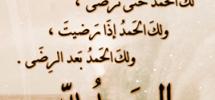 لكَ الحَمدُ حَتى ترضى ،
ولكَ الحَمدُ إذَا رَضيتَ ،
ولكَ الحَمدُ بَعد الرِضَى .